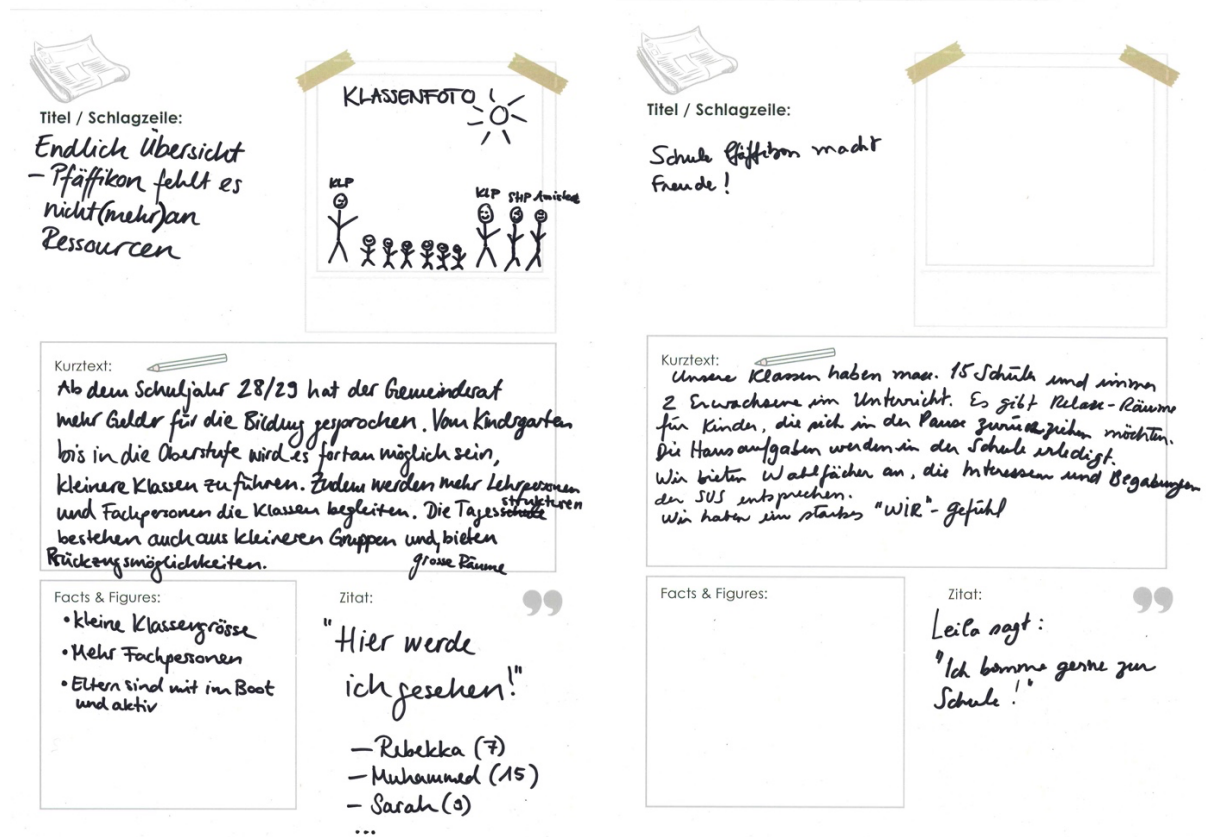 Titel / Schlagzeile:
Endlich Übersicht
– Pfäffikon fehlt es
nicht (mehr) an
Ressourcen
KLASSENFOTO
KLP
KLP SHP Assistenz
Kurztext:
Ab dem Schuljahr 28/29 hat der Gemeinderat
mehr Gelder für die Bildung gesprochen. Vom Kindergarten
bis in die Oberstufe wird es fortan möglich sein,
kleinere Klassen zu führen. Zudem werden mehr Lehrpersonen
und Fachpersonen die Klassen begleiten. Die Tagesstrukturen
bestehen auch aus kleineren Gruppen und, bieten
grosse Räume
Rückzugsmöglichkeiten.
Facts & Figures:
• kleine Klassengrösse
• Mehr Fachpersonen
• Eltern sind mit im Boot
und aktiv
Zitat:
"Hier werde
ich gesehen!"
– Rebekka (7)
– Muhammed (15)
– Sarah (9)
...
Titel / Schlagzeile:
Schule Pfäffikon macht
Freude!
Kurztext:
Unsere Klassen haben max. 15 Schüler und immer
2 Erwachsene im Unterricht. Es gibt Relax-Räume
für Kinder, die sich in der Pause zurückziehen möchten.
Die Hausaufgaben werden in der Schule erledigt.
Wir bieten Wahlfächer an, die Interessen und Begabungen
der SUS entsprechen.
Wir haben ein starkes "WIR"-gefühl
Facts & Figures:
Zitat:
Leila sagt:
"Ich komme gerne zur
Schule!"